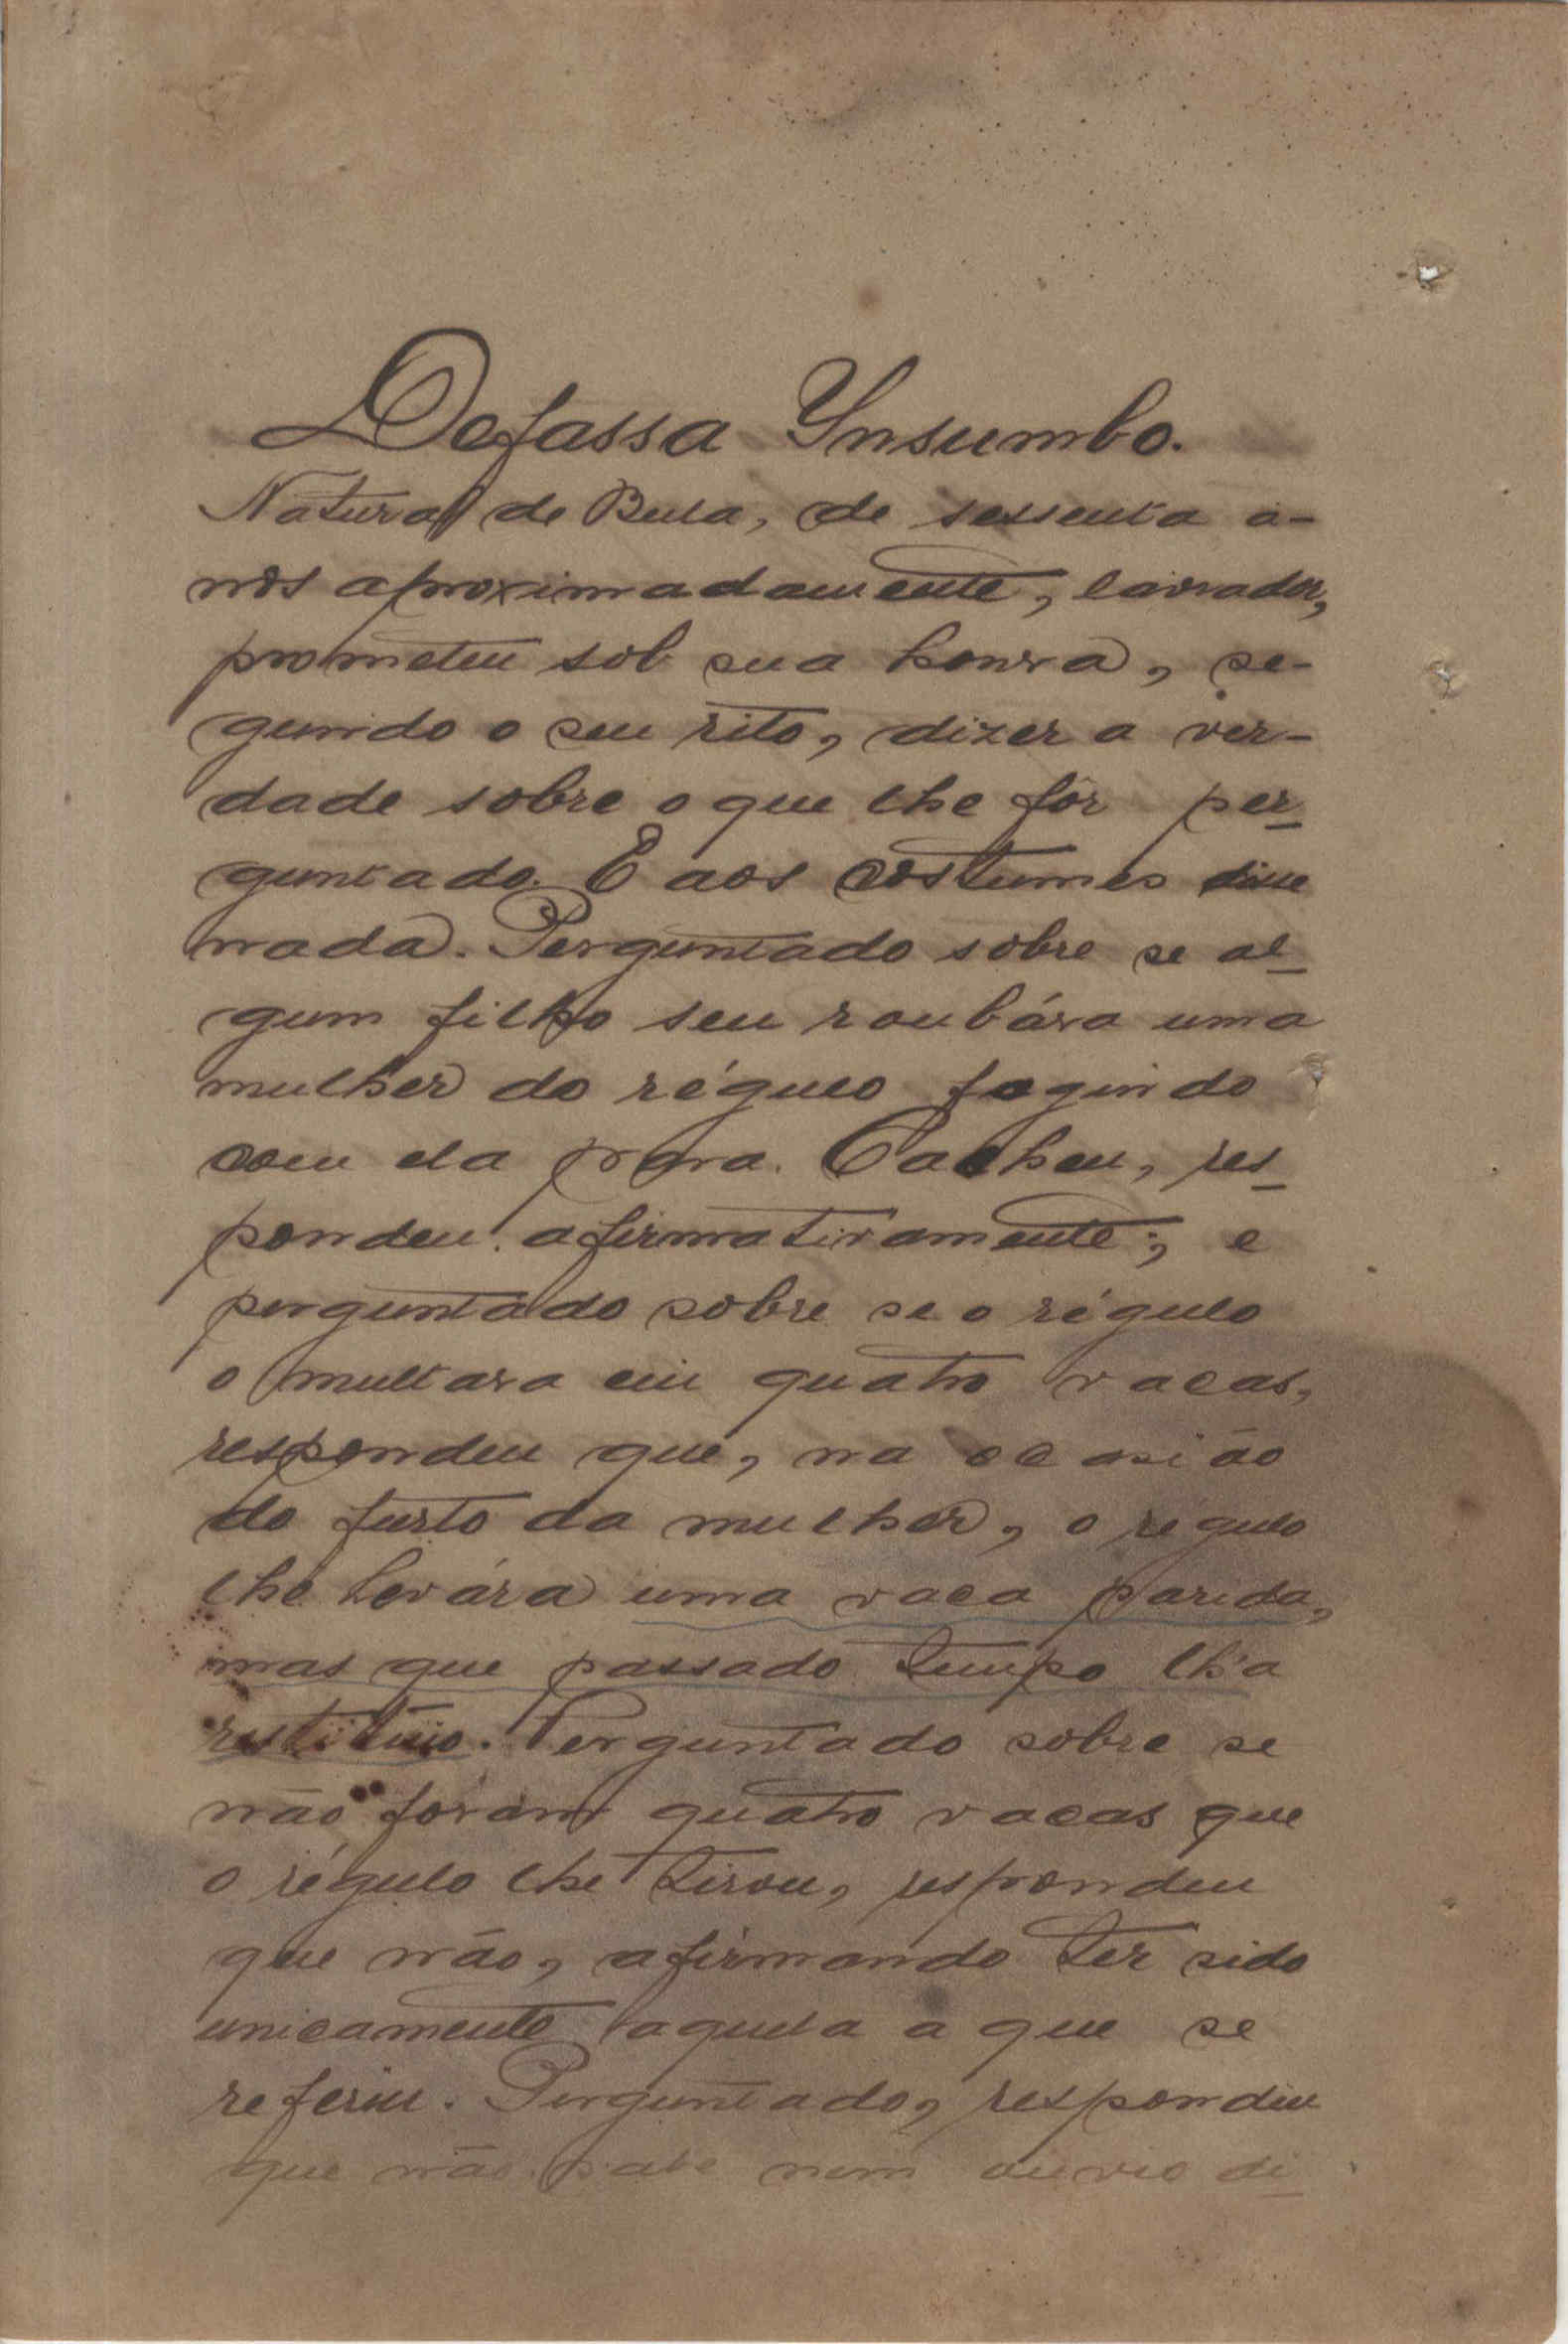 Defassa Ynsumbo.
Natural de Bula, de sessenta a-
nos aproximadamente, lavrador,
prometeu sob sua honra, se-
gundo o seu rito, dizer a ver-
dade sobre o que lhe fôr per-
guntado. E aos costumes disse
nada. Perguntado sobre se al-
gum filho seu roubára uma
mulher do régulo fogindo
com ela para Cacheu, res-
pondeu afirmativamente; e
perguntado sobre se o régulo
o multara em quatro vacas,
respondeu que, na ocasião
do furto da mulher, o régulo
lhe levára uma vaca parida,
mas que passado tempo lh'a
restituiu. Perguntado sobre se
não foram quatro vacas que
o régulo lhe tirou, respondeu
que não, afirmando ter sido
unicamente aquela a que se
referiu. Perguntado, respondeu
que não sabe nem ouviu di-